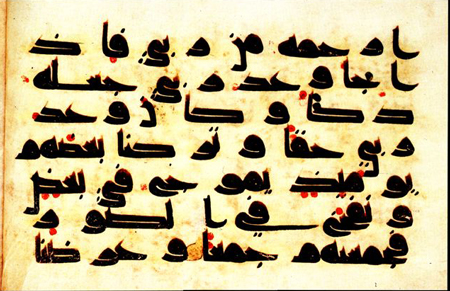 ا رحمه من ربي فاذ
ا جا وعد ربي جعله
دكا وكان وعد
ربي حقا وتركنا بعضهم
يوميذ يموج في بعض
ونفخ في الصور
فجمعنهم جمعا وعرضنا